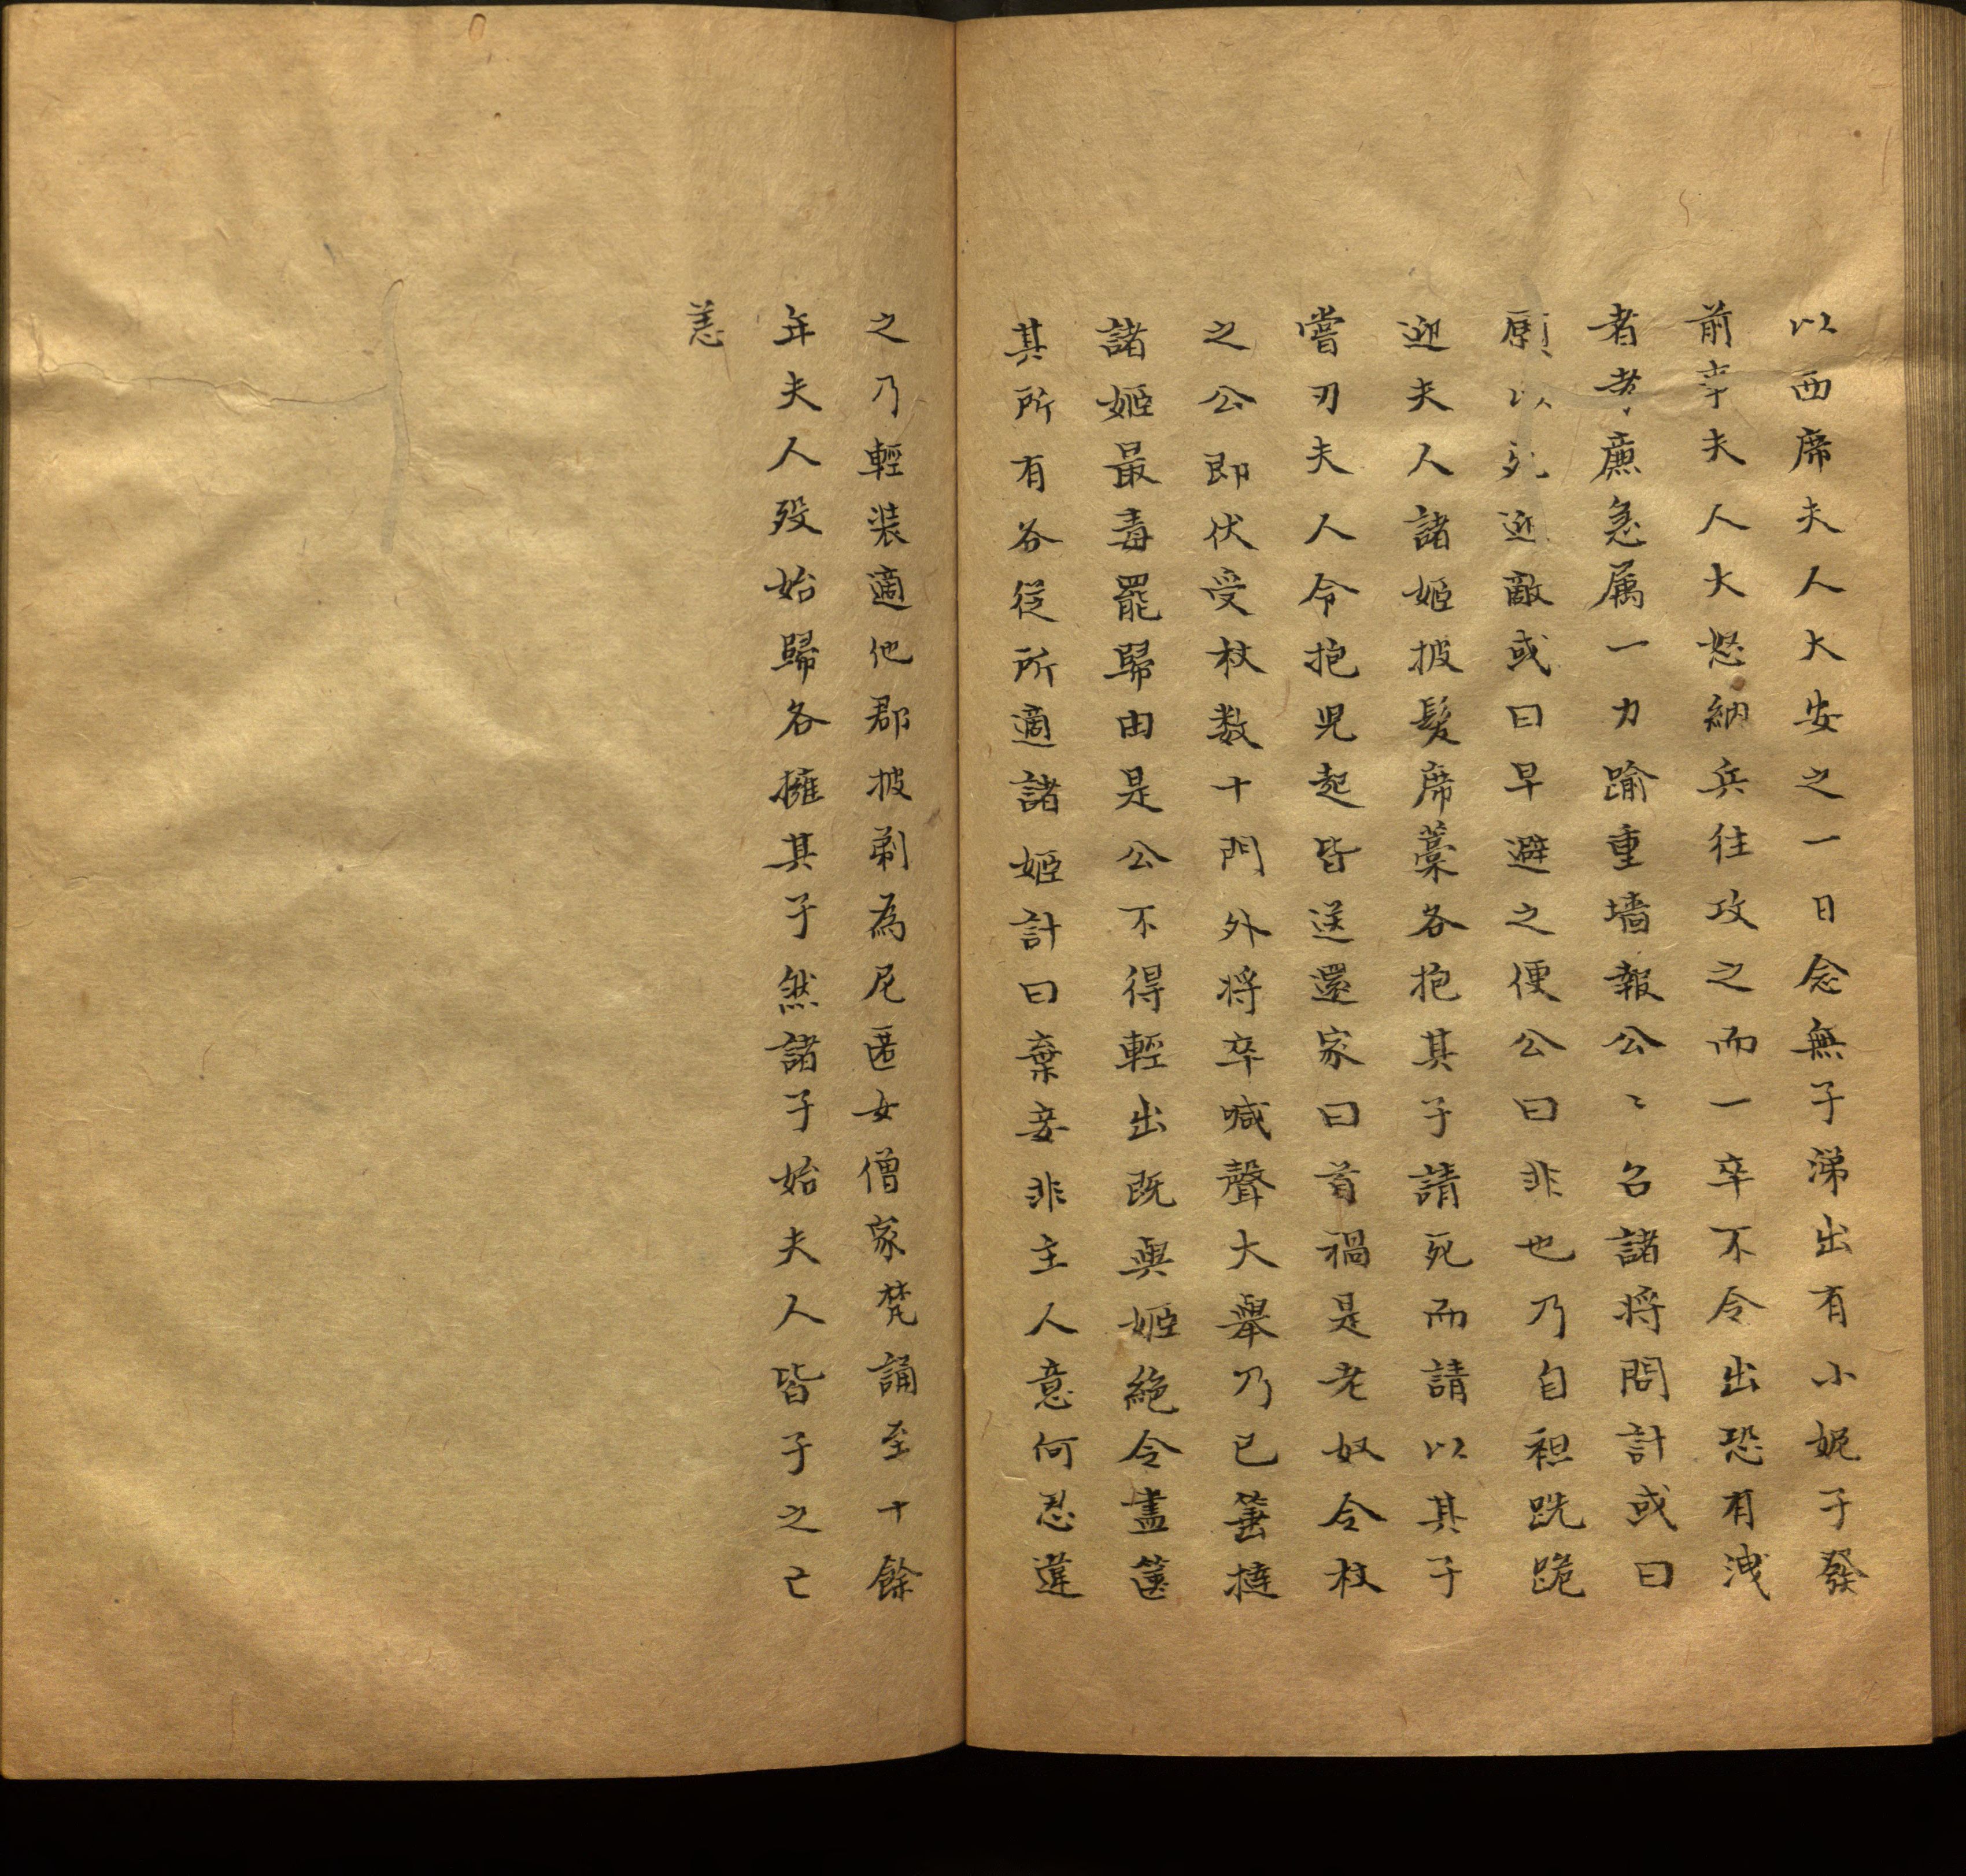 以西席夫人大安之一日念無子涕出有小妮子發
前幸夫人大怒納兵往攻之而一卒不令出恐有洩
者孝廉急属一力踰重墻報公〻召諸将問計或曰
願以死迎敵或曰早避之便公曰非也乃自袒跣跪
迎夫人諸姬披髮席藁各抱其子請死而請以其子
嘗刃夫人令抱児起皆送還家曰首禍是老奴令杖
之公即伏受杖数十門外将卒喊聲大舉乃已箠撻
諸姬最毒罷歸由是公不得輕出既與姬絶令盡篋
其所有各從所適諸姬計曰棄妾非主人意何忍違
之乃輕装適他郡披剃為尼匿女僧家梵誦至十餘
年夫人殁始歸各擁其子然諸子始夫人皆子之已
恙